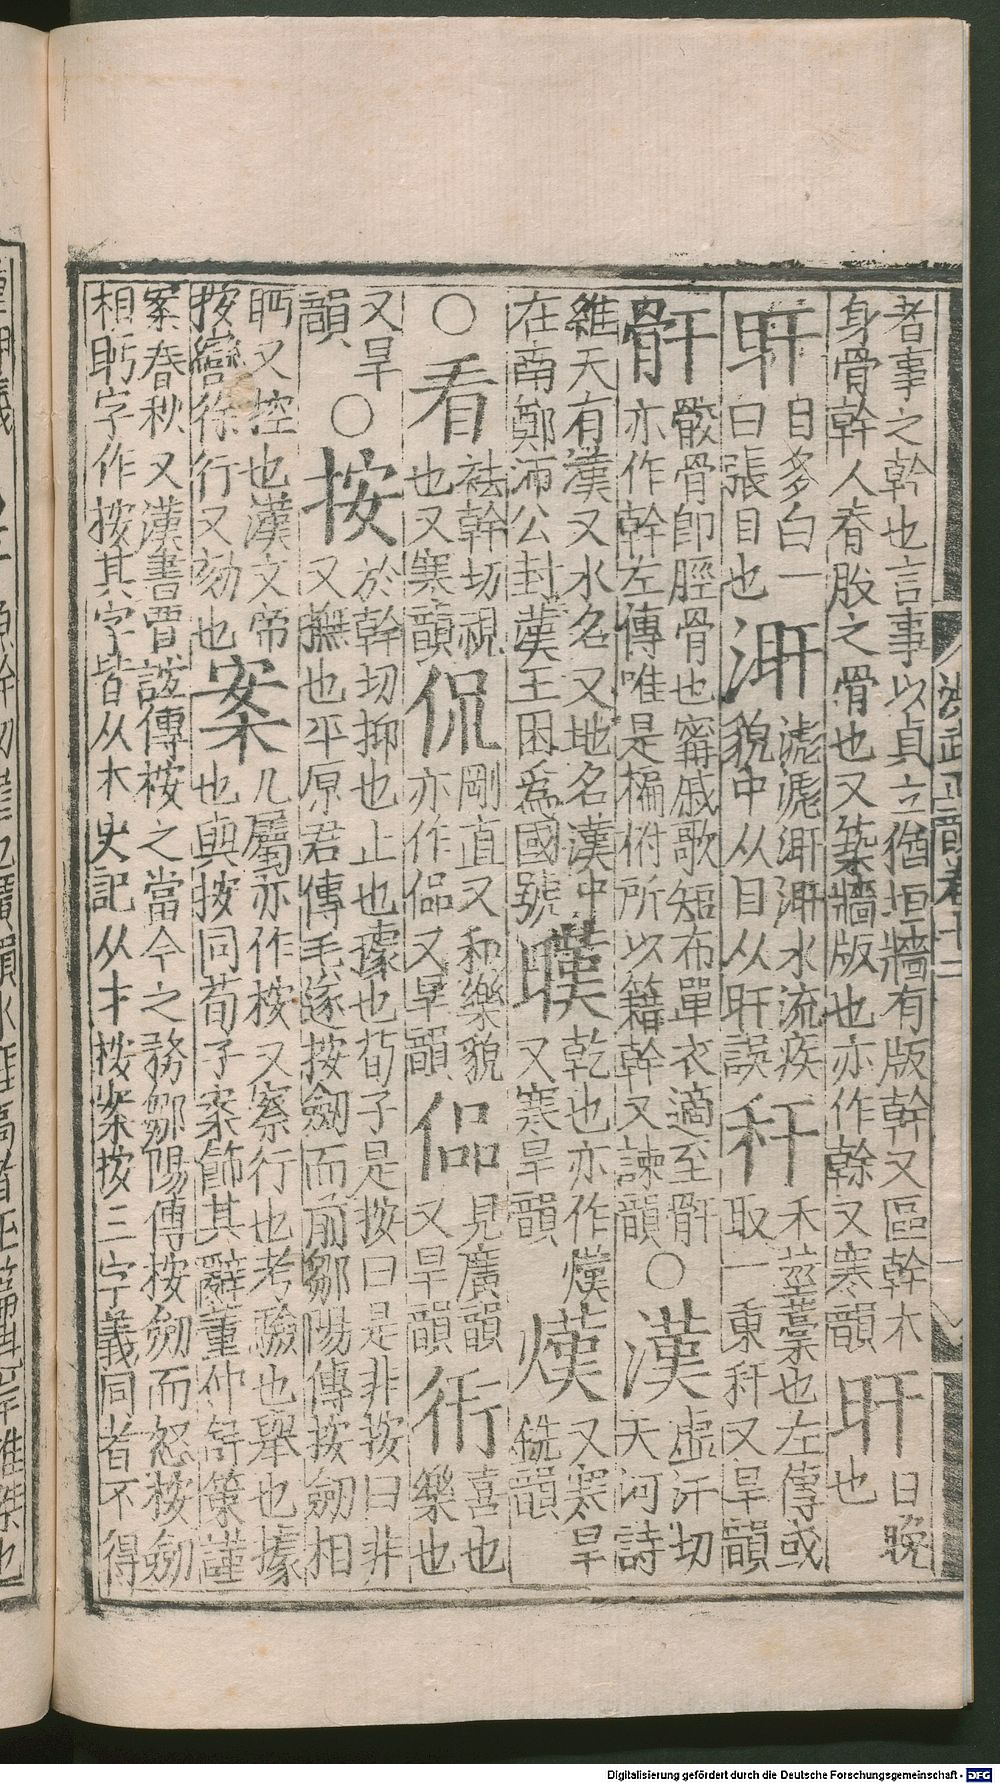 者事之幹也言事以貞立猶垣牆有版幹又區幹木
身骨幹人脊股之骨也又築牆版也亦作榦又寒韻
旰
日晚
也
䀍
目多白一
曰張目也
漧
滮滮漧漧水流疾
貌中从目从旰誤
秆
禾莖藁也左傳或
取一秉秆又旱韻
骭
骹骨卽脛骨也甯戚歌短布單衣適至骭
亦作幹左傳唯是楄柎所以籍幹又諫韻
○
漢
虛汗切
天河詩
維天有漢又水名又地名漢中
在南鄭沛公封漢王因爲國號
暵
乾也亦作熯
又寒旱韻
熯
又寒旱
銑韻
○
看
袪幹切視
也又寒韻
侃
剛直又和樂貌
亦作偘又旱韻
偘
見廣韻
又旱韻
衎
喜也
樂也
又旱
韻
○
按
於幹切抑也止也據也荀子是按曰是非按曰非
又撫也平原君傳毛遂按劒而前鄒陽傳按劒相
眄又控也漢文帝
按轡徐行又劾也
案
几屬亦作桉又察行也考驗也舉也據
也與按同荀子案飾其辭董仲舒策謹
案春秋又漢書賈誼傳桉之當今之務鄒陽傳按劒而怒按劒
相眄字作按其字皆从木史記从才桉案按三字義同者不得
洪武正韻卷十二
Digitalisierung gefördert durch die Deutsche Forschungsgemeinschaft - DFG